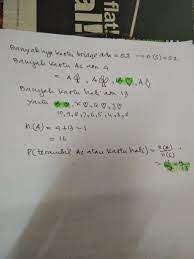 Banyaknya kartu bridge ada = 52 → n(S) = 52
Banyak kartu As ada 4
= A♧, A♤, A♡, A◇
Banyak kartu hati ada 13
yaitu A♡, K♡, Q♡, J♡
10, 9, 8, 7, 6, 5, 4, 3, 2
n(A) = 4 + 13 - 1
= 16
P(terambil As atau kartu hati) = n(A)/n(S)
= 16/52 = 4/13